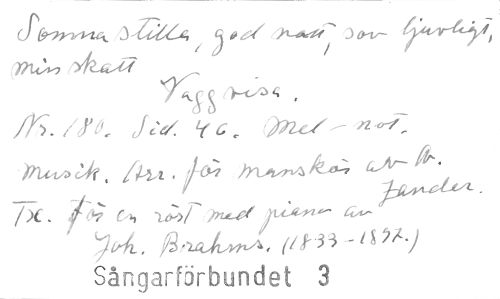 Somna stilla, god natt, sov ljuvligt,
min skatt
Vaggvisa.
Nr. 180. Sid. 46. Mel-not.
Musik. Arr. för manskör av A.
Zander.
Tx. för en röst med piano av
Joh. Brahms. (1833-1897.)
Sångarförbundet 3